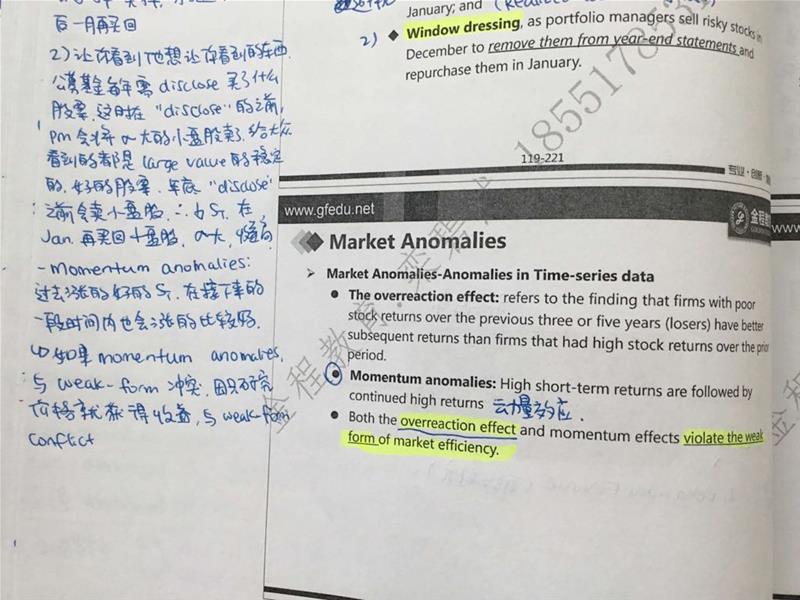 后一月再买回
2) 让你看到他想让你看到的东西
公募基金每年需 disclose 买了什么
股票, 这时在 "disclose" 的之前,
pm会将α大的小盘股卖了, 给大众
看到的都是 large value 的稳定
的, 好的股票, 年底 "disclose"
之前会卖小盘股, ∴ 在
Jan. 再买回小盘股, α大,
- Momentum anomalies:
过去涨的好的 在接下来的
一段时间内也会涨的比较好.
如果 momentum anomalies,
与 weak-form 冲突, 因只研究
价格就获得收益, 与 weak-form
conflict
January; and
2) Window dressing, as portfolio managers sell risky stocks in
December to remove them from year-end statements and
repurchase them in January.
119-221
专业·创新
www.gfedu.net
金程教
Market Anomalies
Market Anomalies-Anomalies in Time-series data
The overreaction effect: refers to the finding that firms with poor
stock returns over the previous three or five years (losers) have better
subsequent returns than firms that had high stock returns over the prior
period.
Momentum anomalies: High short-term returns are followed by
continued high returns 动量效应.
Both the overreaction effect and momentum effects violate the weak
form of market efficiency.
www
金程教育